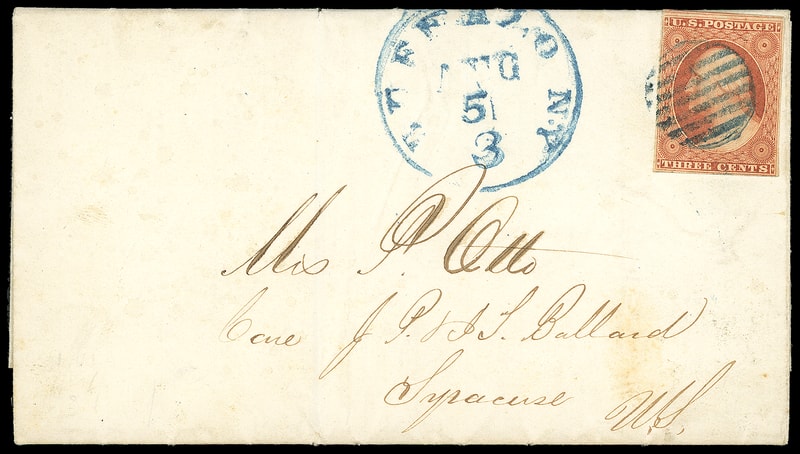 BUFFALO N.Y
AUG
5
3
U.S. POSTAGE
THREE CENTS
P. Otto
Care J P. & J S. Ballard
Syracuse